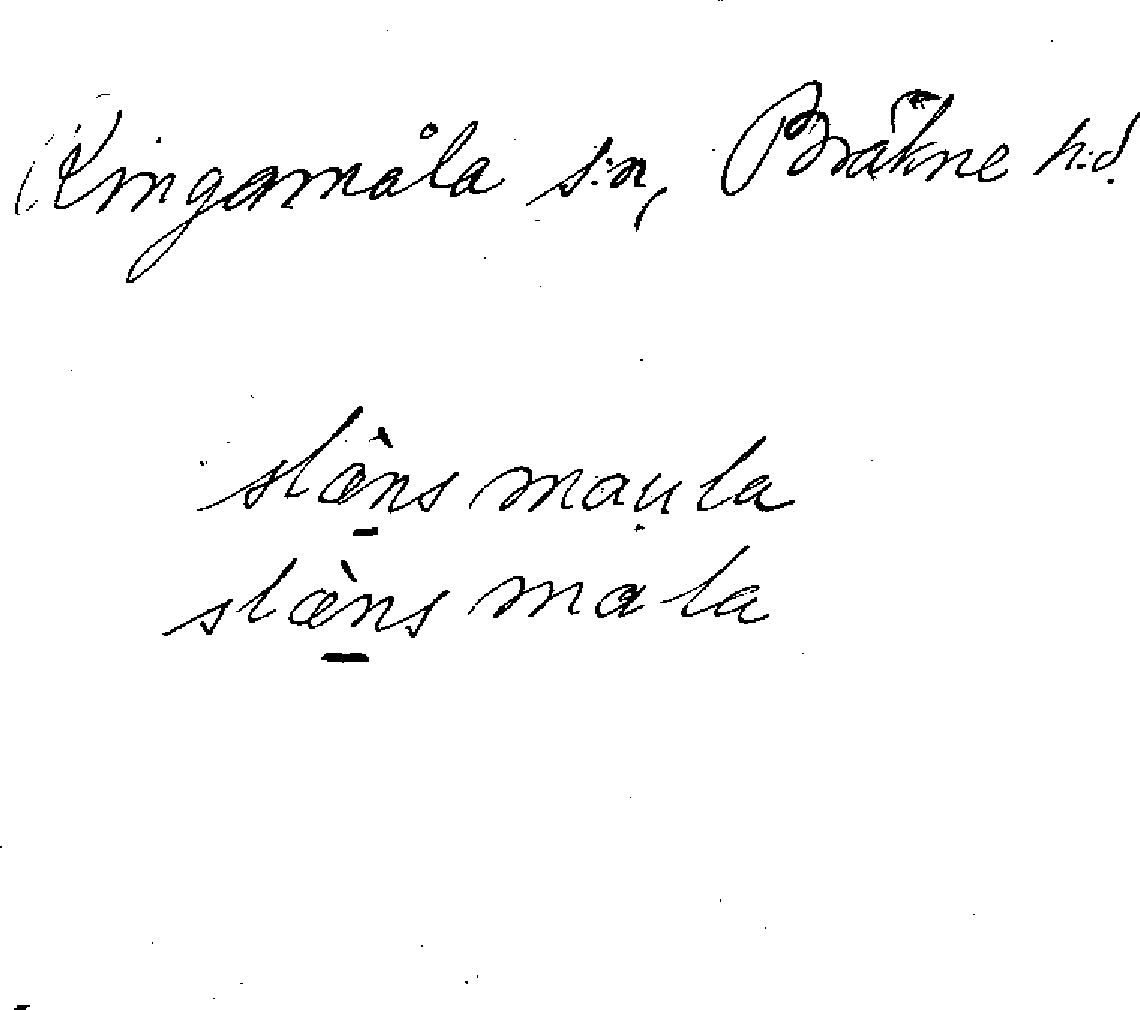 Ringamåla s:n, Bräkne h:d.
stæ̀ns mau̯la
stæ̀ns mala